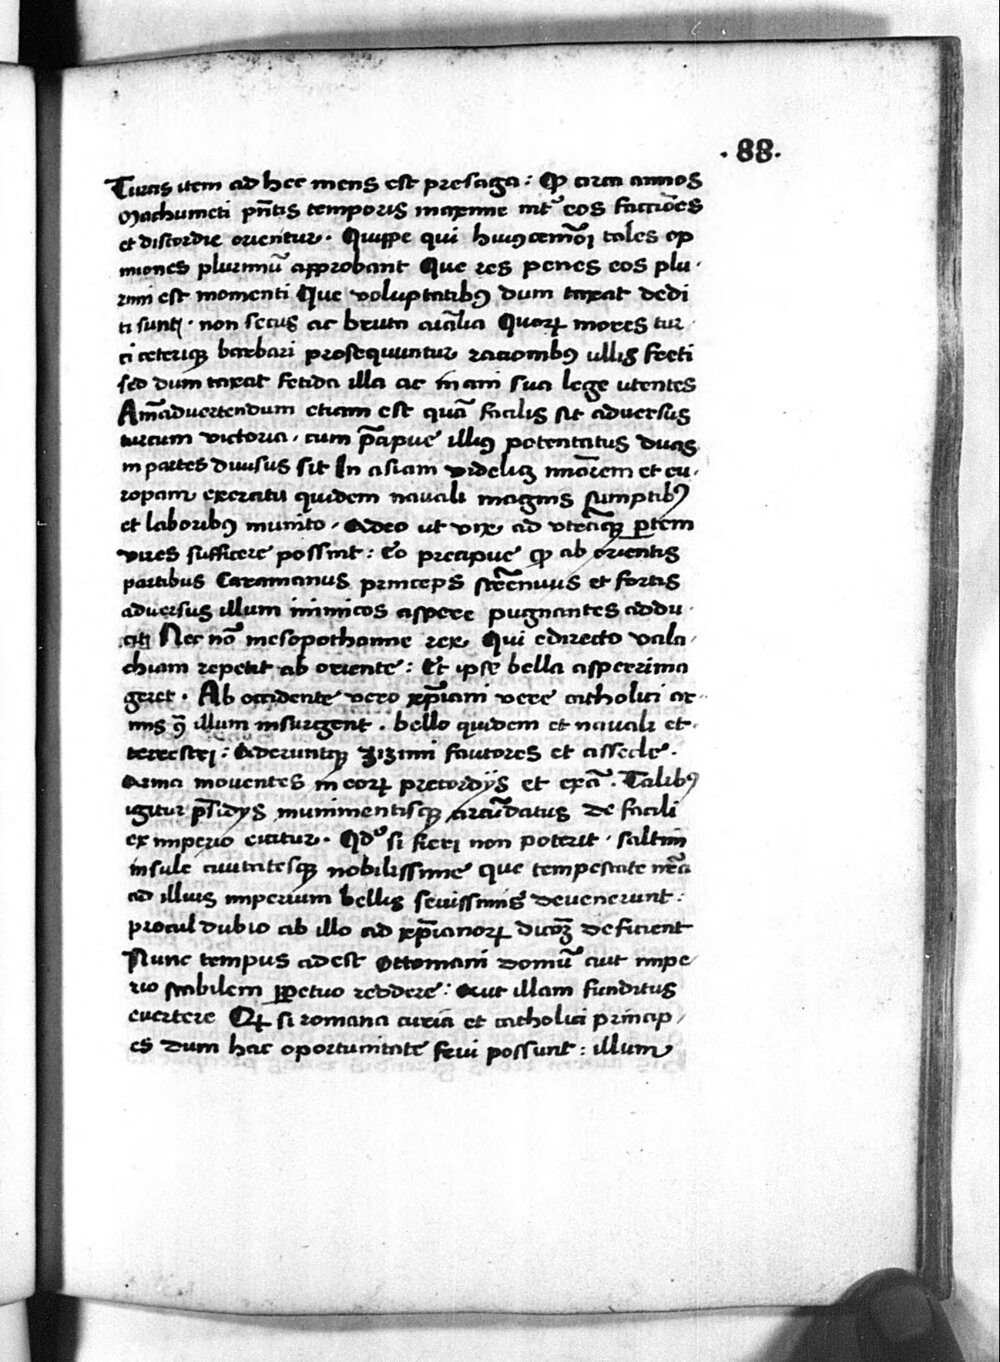 .88.
Turcis item ad hec mens est presaga: Qꝫ circa annos
Machumeti pñtis temporis maxime int̾ eos factiões
et discordie orientur. Quippe qui huiuscemõi tales op
iniones plurimũ approbant Que res penes eos plu-
rimi est momenti Que voluptatibꝰ dum taxat dedi
ti sunt. non secus ac bruta aĩalia Quoꝝ mores tur
ci ceteriqꝫ barbari prosequuntur rationibꝰ ullis freti
sed dum taxat fetida illa ac inani sua lege utentes
Aĩaduertendum etiam est quã facilis sit aduersus
turcum victoria. cum p̃cipue illiꝰ potentatus duas
in partes diuisus sit In asiam videlicꝫ minorem et eu-
ropam exercitu quidem nauali magnis sumptibꝰ
et laboribꝰ munito. Adeo ut vix ad vtrãqꝫ ꝑtem
vires sufficere possint: Eo precipue qꝫ ab orientis
partibus Caramanus princeps strẽnuus et fortis
aduersus illum inimicos aspere pugnantes addu-
cit Nec nõ mesopothamie rex Qui edirecto vala-
chiam repetit ab oriente: Et ipse bella asperrima
geret. Ab occidente vero xp̃iani vere catholici ar-
mis ꝯ̃ illum insurgent. bello quidem et nauali et
terrestri: Aderuntqꝫ Zizimi fautores et assecle.
Arma mouentes in eoꝝ precordijs et exᷓ. Talibꝰ
igitur p̃sidijs munimentisqꝫ circũdatus de facili
ex imperio eicitur. Qdᵒ si fieri non poterit. saltim
insule ciuitatesqꝫ nobilissime que tempestate nr̃a
ad illius imperium bellis seuissimis deuenerunt:
procul dubio ab illo ad xp̃ianoꝝ dicõꝫ deficient
Nunc tempus adest Ottomani domũ aut impe-
rio stabilem ꝑpetuo reddere: Aut illam funditus
euertere Qꝝ si romana curia et catholici princip-
es dum hac oportunitate frui possunt: illum